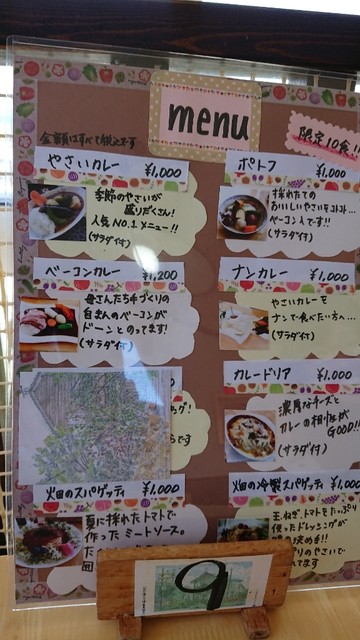 menu
金額はすべて税込です
限定10食!!
やさいカレー ¥1,000
季節のやさいが
盛りだくさん!
人気NO.1メニュー!!
(サラダ付)
ポトフ ¥1,000
採れたての
おいしいやさいをコトコト…
ベーコン入です!!
(サラダ付)
ベーコンカレー ¥1,200
母さんたち手づくりの
自まんのベーコンが
ドーンとのってます!
(サラダ付)
ナンカレー ¥1,000
やさいカレーを
ナンで食べたい方へ…
(サラダ付)
カレードリア ¥1,000
濃厚なチーズと
カレーの相性が
GOOD!!
(サラダ付)
畑のスパゲッティ ¥1,000
夏に採れたトマトで
作ったミートソース。
畑の冷製スパゲッティ ¥1,000
玉ねぎ、トマトをたっぷり
使ったドレッシングが
9